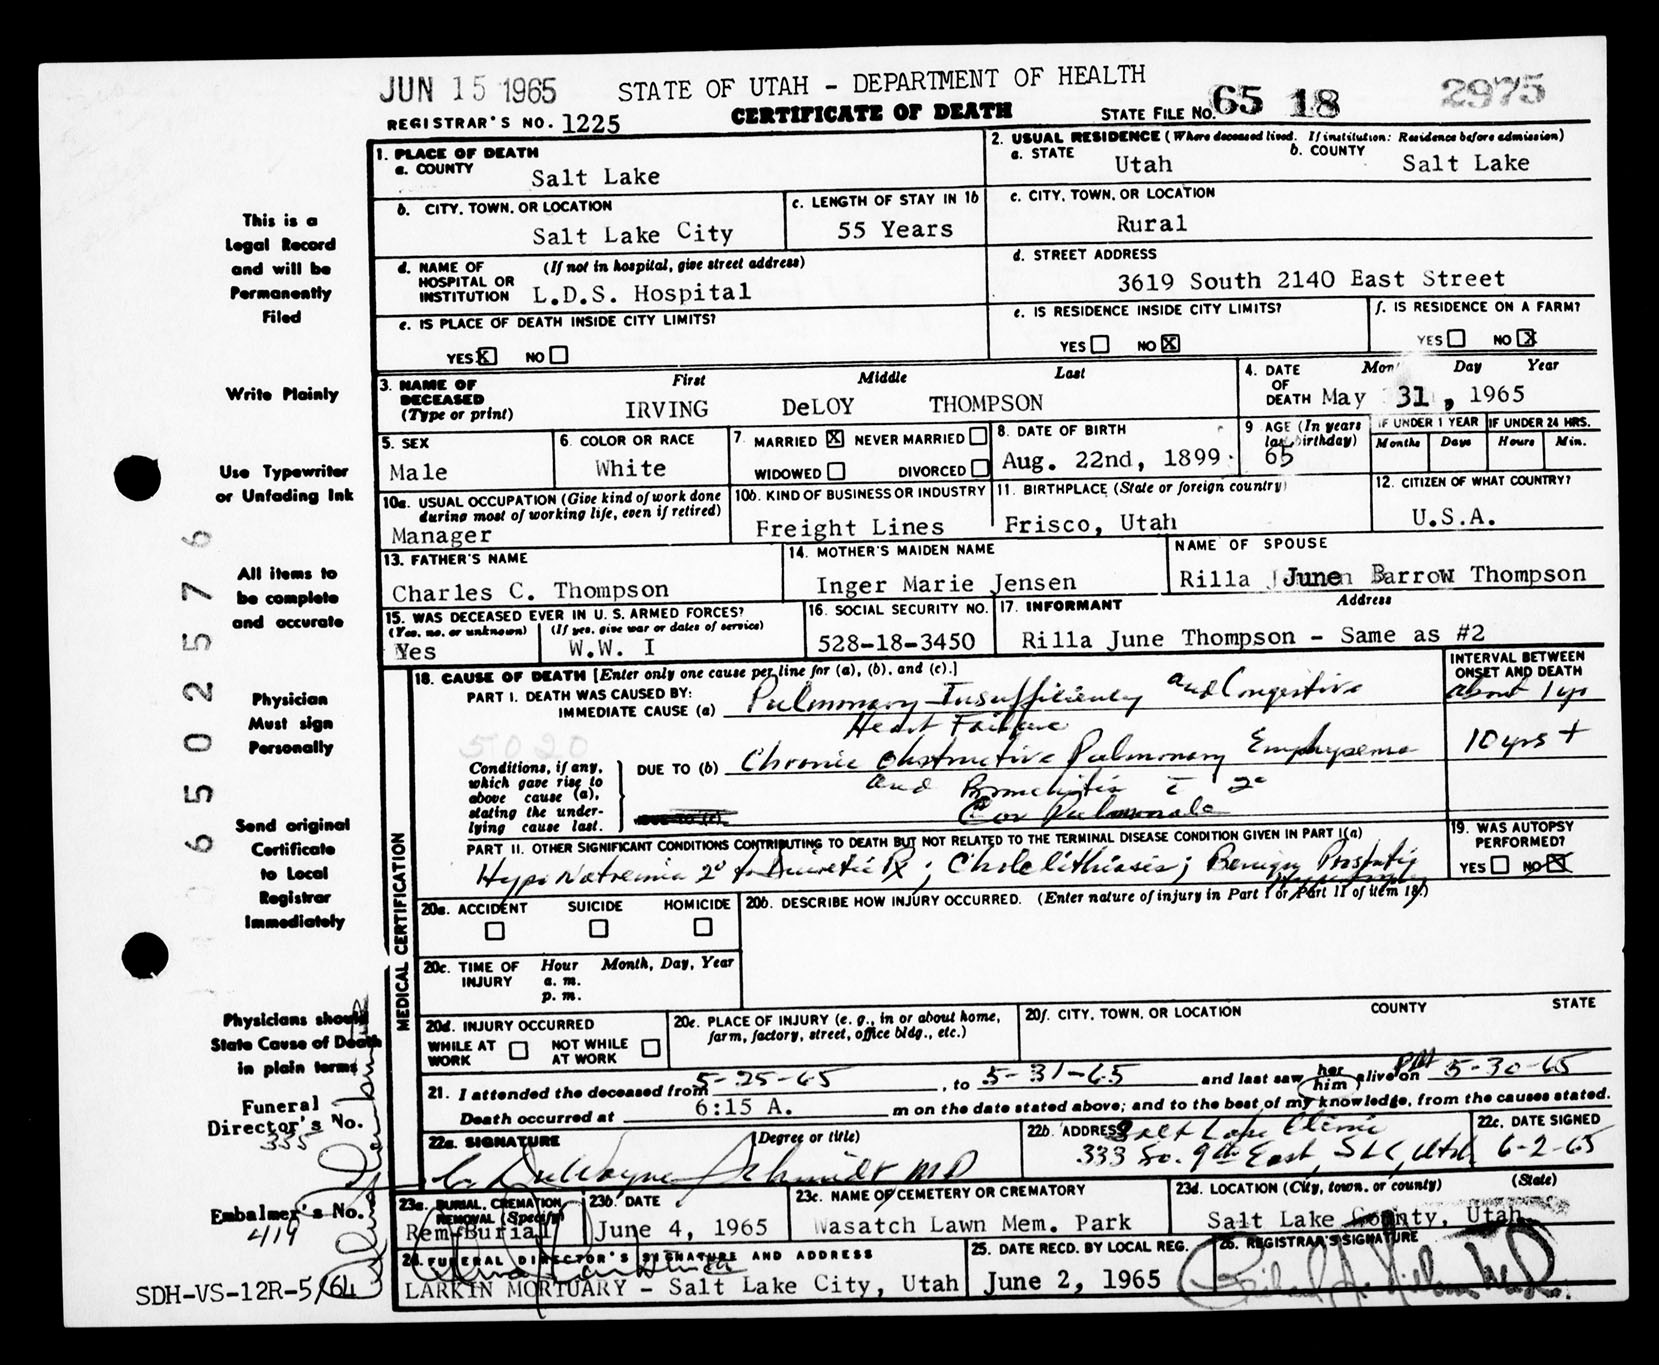 JUN 15 1965 STATE OF UTAH - DEPARTMENT OF HEALTH 2975
REGISTRAR'S NO. 1225 CERTIFICATE OF DEATH STATE FILE NO. 65 18
1. PLACE OF DEATH
a. COUNTY
Salt Lake
2. USUAL RESIDENCE (Where deceased lived. If institution: Residence before admission)
a. STATE Utah b. COUNTY Salt Lake
b. CITY, TOWN, OR LOCATION
Salt Lake City
c. LENGTH OF STAY IN 1b
55 Years
c. CITY, TOWN, OR LOCATION
Rural
d. NAME OF HOSPITAL OR INSTITUTION (If not in hospital, give street address)
L.D.S. Hospital
d. STREET ADDRESS
3619 South 2140 East Street
e. IS PLACE OF DEATH INSIDE CITY LIMITS?
YES X NO
e. IS RESIDENCE INSIDE CITY LIMITS?
YES NO X
f. IS RESIDENCE ON A FARM?
YES NO X
3. NAME OF DECEASED (Type or print)
First Middle Last
IRVING DeLOY THOMPSON
4. DATE OF DEATH Day Year
May 31, 1965
5. SEX
Male
6. COLOR OR RACE
White
7. MARRIED X NEVER MARRIED
WIDOWED DIVORCED
8. DATE OF BIRTH
Aug. 22nd, 1899
9 AGE (In years last birthday)
65
IF UNDER 1 YEAR
Months Days
IF UNDER 24 HRS.
Hours Min.
10a. USUAL OCCUPATION (Give kind of work done during most of working life, even if retired)
Manager
10b. KIND OF BUSINESS OR INDUSTRY
Freight Lines
11. BIRTHPLACE (State or foreign country)
Frisco, Utah
12. CITIZEN OF WHAT COUNTRY?
U.S.A.
13. FATHER'S NAME
Charles C. Thompson
14. MOTHER'S MAIDEN NAME
Inger Marie Jensen
NAME OF SPOUSE
Rilla June Barrow Thompson
15. WAS DECEASED EVER IN U. S. ARMED FORCES?
(Yes, no, or unknown) (If yes, give war or dates of service)
Yes W.W. I
16. SOCIAL SECURITY NO.
528-18-3450
17. INFORMANT Address
Rilla June Thompson - Same as #2
MEDICAL CERTIFICATION
18. CAUSE OF DEATH [Enter only one cause per line for (a), (b), and (c).]
INTERVAL BETWEEN ONSET AND DEATH
PART I. DEATH WAS CAUSED BY:
IMMEDIATE CAUSE (a) Pulmonary Insufficiency and Congestive about 1 yr
Heart Failure
5020
Conditions, if any, which gave rise to above cause (a), stating the underlying cause last.
DUE TO (b) Chronic obstructive Pulmonary Emphysema 10 yrs +
and Bronchitis c̄ 2°
Cor Pulmonale
PART II. OTHER SIGNIFICANT CONDITIONS CONTRIBUTING TO DEATH BUT NOT RELATED TO THE TERMINAL DISEASE CONDITION GIVEN IN PART I(a)
HypoNatremia 2° to Diuretic Rx; Cholelithiasis; Benign Prostatic
Hypertrophy
19. WAS AUTOPSY PERFORMED?
YES NO X
20a. ACCIDENT SUICIDE HOMICIDE
20b. DESCRIBE HOW INJURY OCCURRED. (Enter nature of injury in Part I or Part II of item 18.)
20c. TIME OF INJURY Hour Month, Day, Year
a. m.
p. m.
20d. INJURY OCCURRED
WHILE AT WORK NOT WHILE AT WORK
20e. PLACE OF INJURY (e. g., in or about home, farm, factory, street, office bldg., etc.)
20f. CITY, TOWN, OR LOCATION COUNTY STATE
21. I attended the deceased from 5-25-65, to 5-31-65 and last saw her him alive on PM 5-30-65
Death occurred at 6:15 A. m on the date stated above; and to the best of my knowledge, from the causes stated.
22a. SIGNATURE (Degree or title)
C. DuWayne Schmidt MD
22b. ADDRESS Salt Lake Clinic
333 So. 9th East, SLC, Utah
22c. DATE SIGNED
6-2-65
23a. BURIAL, CREMATION REMOVAL (Specify)
Rem-Burial
23b. DATE
June 4, 1965
23c. NAME OF CEMETERY OR CREMATORY
Wasatch Lawn Mem. Park
23d. LOCATION (City, town, or county) (State)
Salt Lake County, Utah
24. FUNERAL DIRECTOR'S SIGNATURE AND ADDRESS
LARKIN MORTUARY - Salt Lake City, Utah
25. DATE RECD. BY LOCAL REG.
June 2, 1965
26. REGISTRAR'S SIGNATURE
This is a
Legal Record
and will be
Permanently
Filed
Write Plainly
Use Typewriter
or Unfading Ink
All items to
be complete
and accurate
Physician
Must sign
Personally
Send original
Certificate
to Local
Registrar
Immediately
Physicians should
State Cause of Death
in plain terms
Funeral
Director's No.
335
Embalmer's No.
419
SDH-VS-12R-5/64
6502576